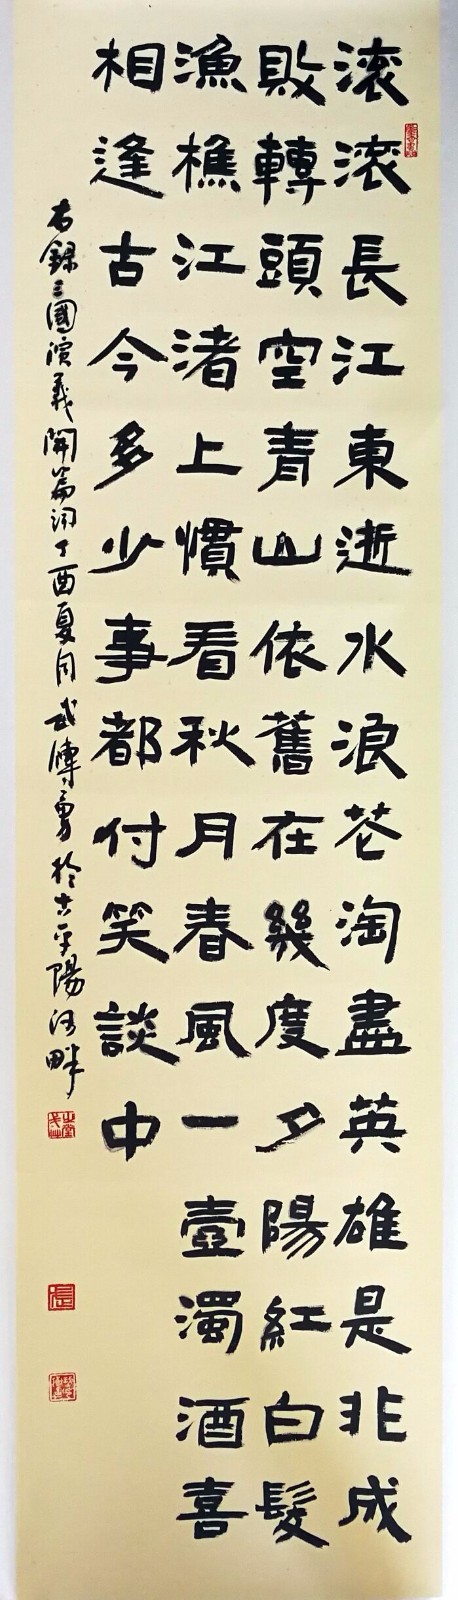 滚滚長江東逝水浪花淘盡英雄是非成
敗轉頭空青山依舊在幾度夕陽紅白髮
漁樵江渚上慣看秋月春風一壺濁酒喜
相逢古今多少事都付笑談中
右錄三國演義開篇詞丁酉夏月武傳勇於古平陽河畔